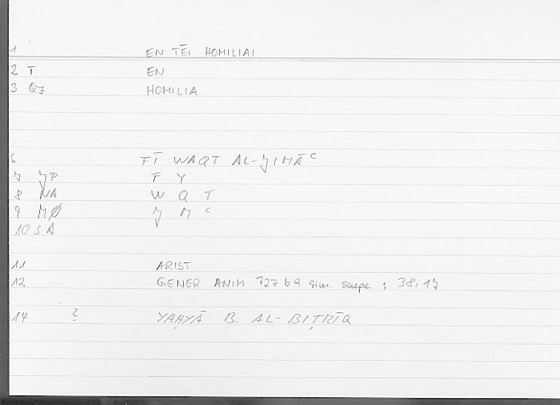 1 EN TĒI HOMILIAI
2 T EN
3 QJ HOMILIA
6 FĪ WAQT AL-JIMĀc
7 JP F Y
8 NA W Q T
9 MØ J M c
10 SA
11 ARIST
12 GENER ANIM 727 b 9 sim. saepe ; 38,17
14 ? YAḤYĀ B. AL-BIṬRĪQ